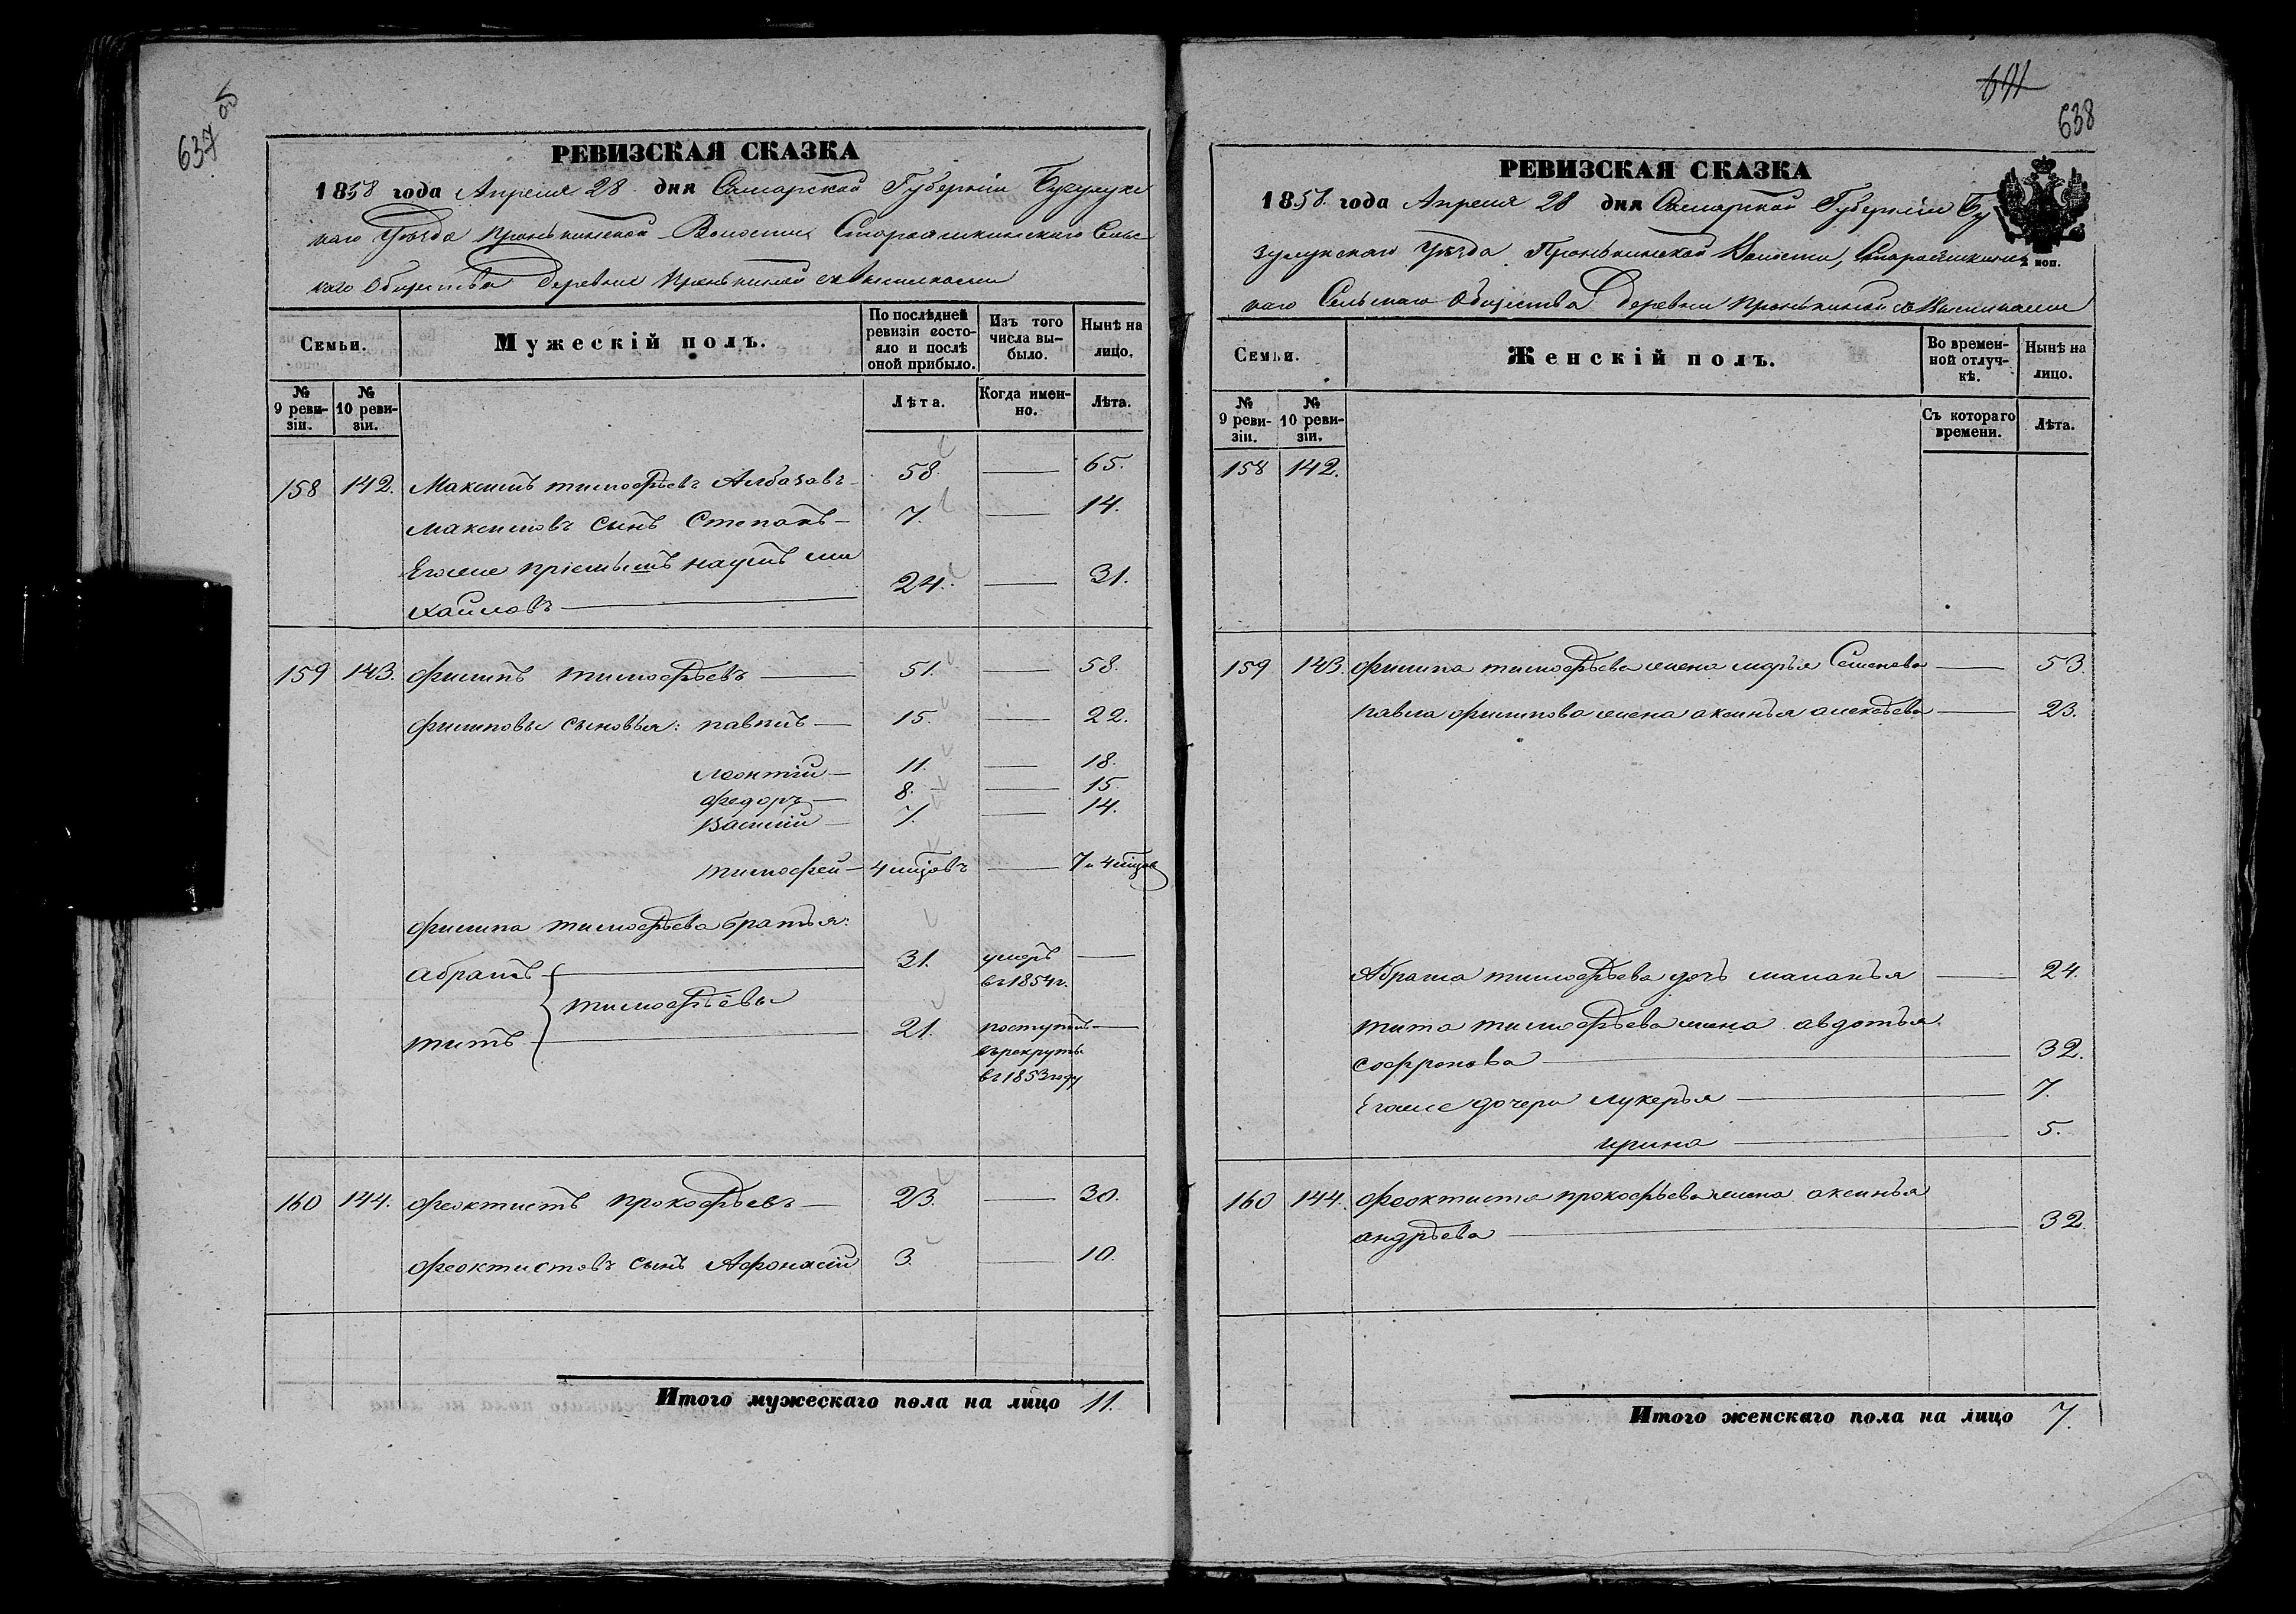 637 об
РЕВИЗСКАЯ СКАЗКА
1858 года Апреля 28 дня Самарской Губерніи Бузулукс
каго Уѣзда Пронькинской Волости Староашкинскаго Сельс
каго Общества Деревни Пронькиной
Семьи.
Мужескій полъ.
По послѣдней ревизіи состояло и послѣ оной прибыло.
Изъ того числа выбыло.
Нынѣ на лицо.
№ 9 ревизіи.
№ 10 ревизіи.
Лѣта.
Когда именно.
Лѣта.
158 142. Максимъ тимофѣевъ 58. — 65.
Максимовъ сынъ Степанъ — 7. — 14.
Егоже пріемышъ наумъ ми
хайловъ — 24. — 31.
159 143. филипъ тимофѣевъ — 51. — 58.
филиповы сыновья: павилъ — 15. — 22.
леонтій — 11. — 18.
федоръ — 8. — 15.
Василий — 7. — 14.
тимофей — 4 мѣцовъ — 7 и 4 мѣцов
филипа тимофѣева братья:
абрамъ — 31. умеръ —
в 1854 г.
тимофѣевы
титъ — 21. поступилъ —
въ рекруты
в 1853 году
160 144. феоктистъ прокофьевъ — 23. — 30.
феоктистовъ сынъ Афонасій 3. — 10.
Итого мужескаго пола на лицо 11.
641
638
РЕВИЗСКАЯ СКАЗКА
1858 года Апреля 28 дня Самарской Губерніи Бу
зулукскаго Уѣзда Пронькинской Волости, Староашкинс
каго Сельскаго Общества Деревни Пронькиной
2 коп.
Семьи.
Женскій полъ.
Во временной отлучкѣ.
Нынѣ на лицо.
№ 9 ревизіи.
№ 10 ревизіи.
Съ котораго времени.
Лѣта.
158 142.
159 143. филипа тимофѣева жена марья Семенова — 53.
павла филипова жена аксинья алексѣева — 23.
Абрама тимофѣева дочь маланья — 24.
тита тимофѣева жена авдотья
софронова — 32.
Егоже дочери лукерья — 7.
ирина — 5.
160 144. феоктиста прокофьева жена аксинья
андрѣева — 32.
Итого женскаго пола на лицо 7.